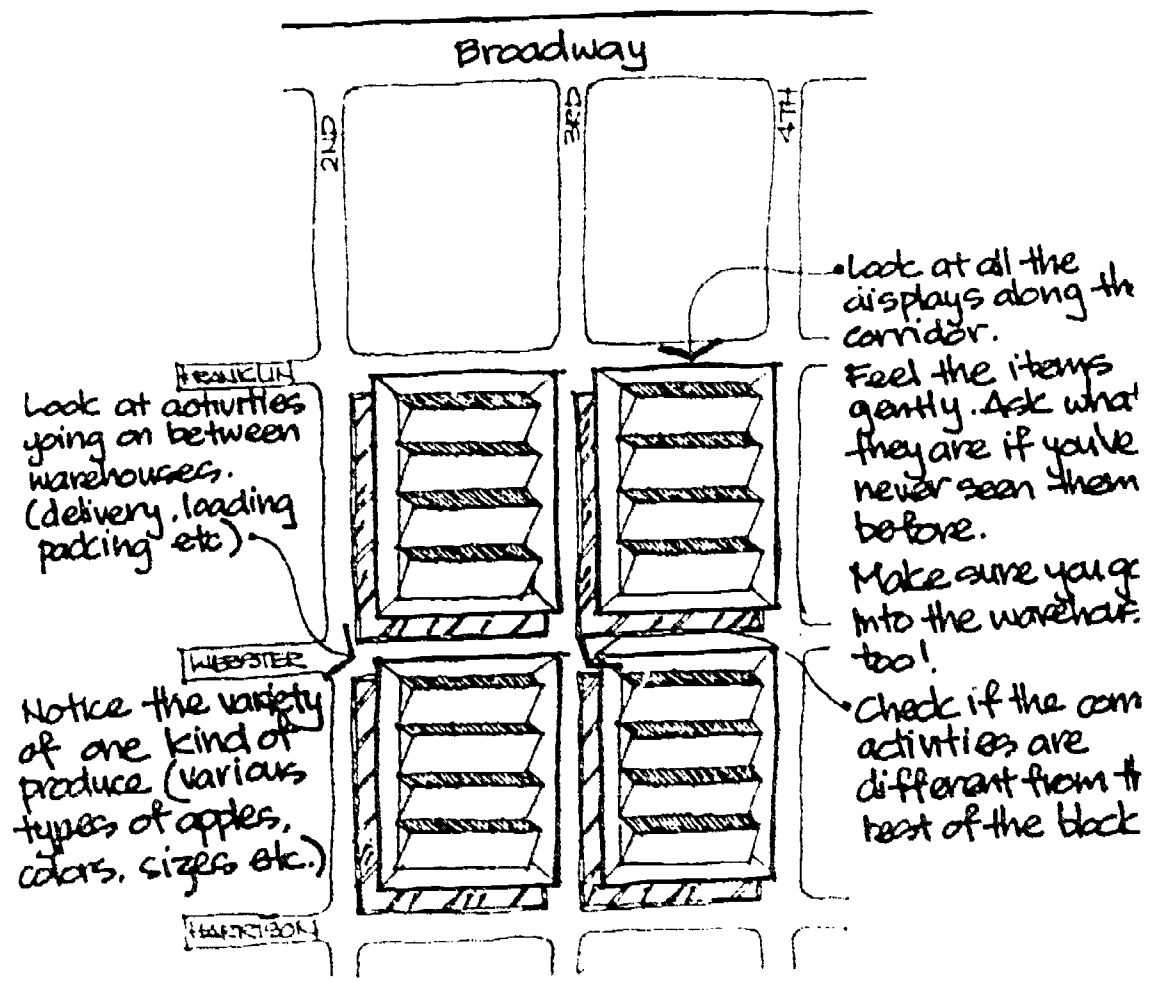 Broadway
2ND
3RD
4TH
FRANKLIN
WEBSTER
HARRISON
Look at activities
going on between
warehouses.
(delivery, loading
packing etc)
Notice the variety
of one kind of
produce (various
types of apples,
colors, sizes etc.)
Look at all the
displays along th
corridor.
Feel the items
gently. Ask what
they are if you've
never seen them
before.
Make sure you go
into the warehous
too!
Check if the corn
activities are
different from th
rest of the block